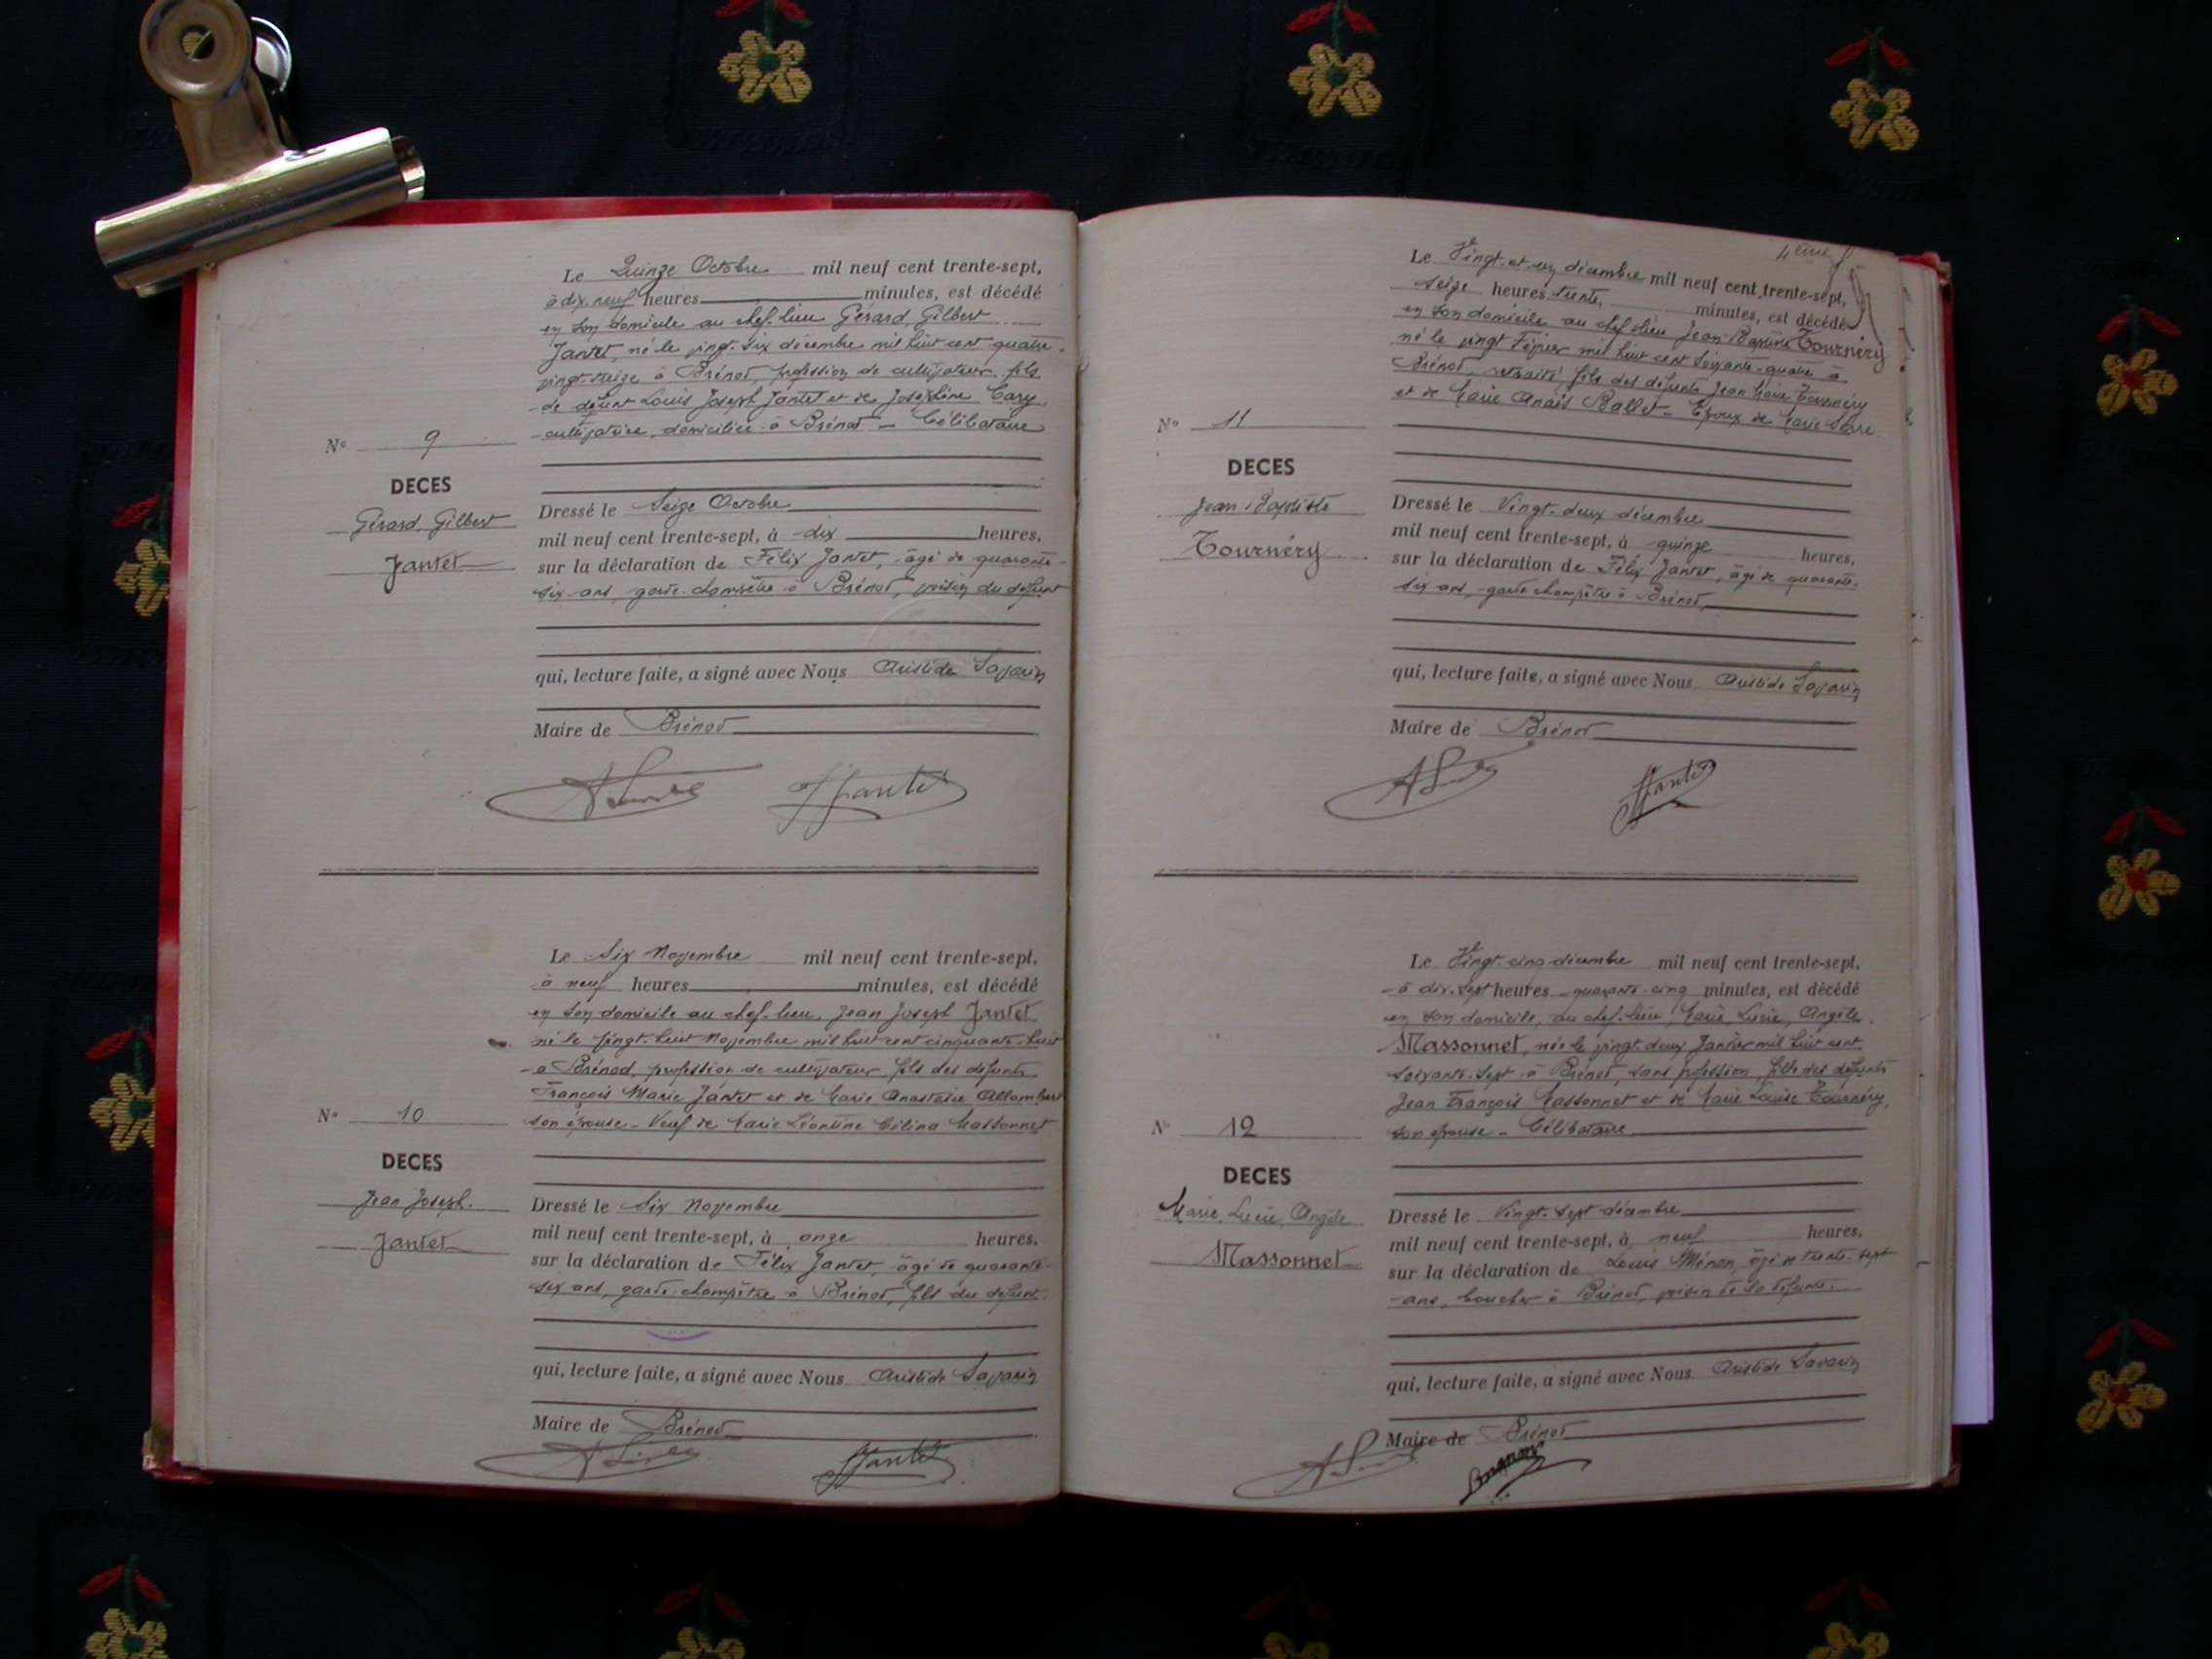 Le Quinze Octobre mil neuf cent trente-sept,
à dix neuf heures minutes, est décédé
en son domicile au chef-lieu Gérard, Gilbert
Jantet, né le vingt-six décembre mil huit cent quatre-
vingt-treize à Brénod, profession de cultivateur fils
de défunt Louis Joseph Jantet et de Joséphine Cary
cultivatrice, domiciliée à Brénod - Célibataire
N° 9
DECES
Gérard, Gilbert
Jantet
Dressé le Seize Octobre
mil neuf cent trente-sept, à dix heures,
sur la déclaration de Félix Jantet, âgé de quarante-
six ans, garde-champêtre à Brénod, voisin du défunt
qui, lecture faite, a signé avec Nous Aristide Savarin
Maire de Brénod
Jantet
Le Six Novembre mil neuf cent trente-sept,
à neuf heures minutes, est décédé
en son domicile au chef-lieu, Jean Joseph Jantet
né le vingt-huit Novembre mil huit cent cinquante-huit
à Brénod, profession de cultivateur, fils des défunts
François Marie Jantet et de Marie Anastasie Allombert
son épouse - Veuf de Marie Léontine Célina Massonnet
N° 10
DECES
Jean Joseph.
Jantet
Dressé le Six Novembre
mil neuf cent trente-sept, à onze heures,
sur la déclaration de Félix Jantet, âgé de quarante-
six ans, garde-champêtre à Brénod, fils du défunt.
qui, lecture faite, a signé avec Nous Aristide Savarin
Maire de Brénod
Jantet
4ème
Le Vingt-et-un décembre mil neuf cent trente-sept,
seize heures trente, minutes, est décédé
en son domicile au chef-lieu Jean-Baptiste Tournéry
né le vingt Février mil huit cent soixante-quatre à
Brénod, retraité, fils des défunts Jean Marie Tournéry
et de Marie Anaïs Ballet - Epoux de Marie Serre
N° 11
DECES
Jean Baptiste
Tournéry
Dressé le Vingt-deux décembre
mil neuf cent trente-sept, à quinze heures,
sur la déclaration de Félix Jantet, âgé de quarante-
six ans, garde champêtre à Brénod,
qui, lecture faite, a signé avec Nous Aristide Savarin
Maire de Brénod
Jantet
Le Vingt-cinq décembre mil neuf cent trente-sept,
à dix-sept heures quarante-cinq minutes, est décédé
en son domicile, au chef-lieu, Marie, Lucie, Angèle.
Massonnet, née le vingt-deux Janvier mil huit cent
soixante-sept à Brénod, sans profession, fille des défunts
Jean François Massonnet et de Marie Louise Tournéry,
son épouse - Célibataire
N° 12
DECES
Marie, Lucie, Angèle
Massonnet
Dressé le Vingt-sept décembre
mil neuf cent trente-sept, à neuf heures,
sur la déclaration de Louis âgé de trente-sept
ans, boucher à Brénod, voisin de la défunte.
qui, lecture faite, a signé avec Nous Aristide Savarin
Maire de Brénod